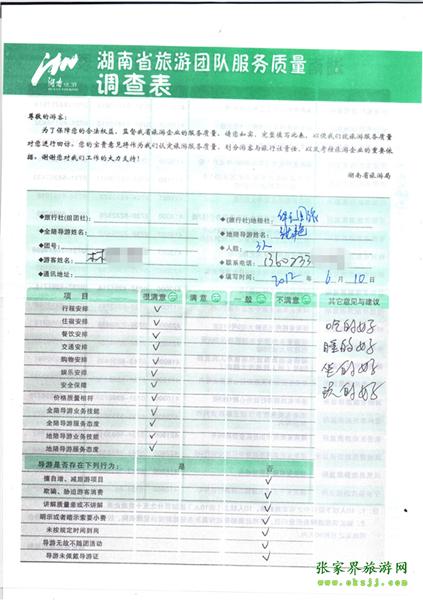 湖南省旅游团队服务质量
调查表
尊敬的游客：
为了保障您的合法权益，监督我省旅游企业的服务质量，请您如实、完整填写此表，以便我们就旅游服务质量
对您进行回访。您的宝贵意见将作为我们认定旅游服务质量、划分游客与旅行社责任、以及考核旅游企业的重要依
据。谢谢您对我们工作的大力支持！
湖南省旅游局
◆旅行社(组团社)：
◆(旅行社)地接社：
◆全陪导游姓名：
◆地陪导游姓名：
◆团号：
◆人数：32
◆游客姓名：林
◆联系电话：1360233
◆通讯地址：
◆填写时间：2012年6月10日
项目 很满意 满意 一般 不满意 其它意见与建议
行程安排 ✓
住宿安排 ✓ 吃的好
餐饮安排 ✓
交通安排 ✓ 睡的好
购物安排 ✓
娱乐安排 ✓ 坐的好
安全保障 ✓
价格质量相符 ✓ 玩的好
全陪导游业务技能 ✓
全陪导游服务态度 ✓
地陪导游业务技能 ✓
地陪导游服务态度 ✓
导游是否存在下列行为： 是 否
擅自增、减旅游项目 ✓
欺骗、胁迫游客消费 ✓
讲解质量差或不讲解 ✓
明示或者暗示索要小费 ✓
未按规定时间到岗 ✓
导游无故不随团活动 ✓
导游未佩戴导游证 ✓
张家界旅游网
www.okzjj.com